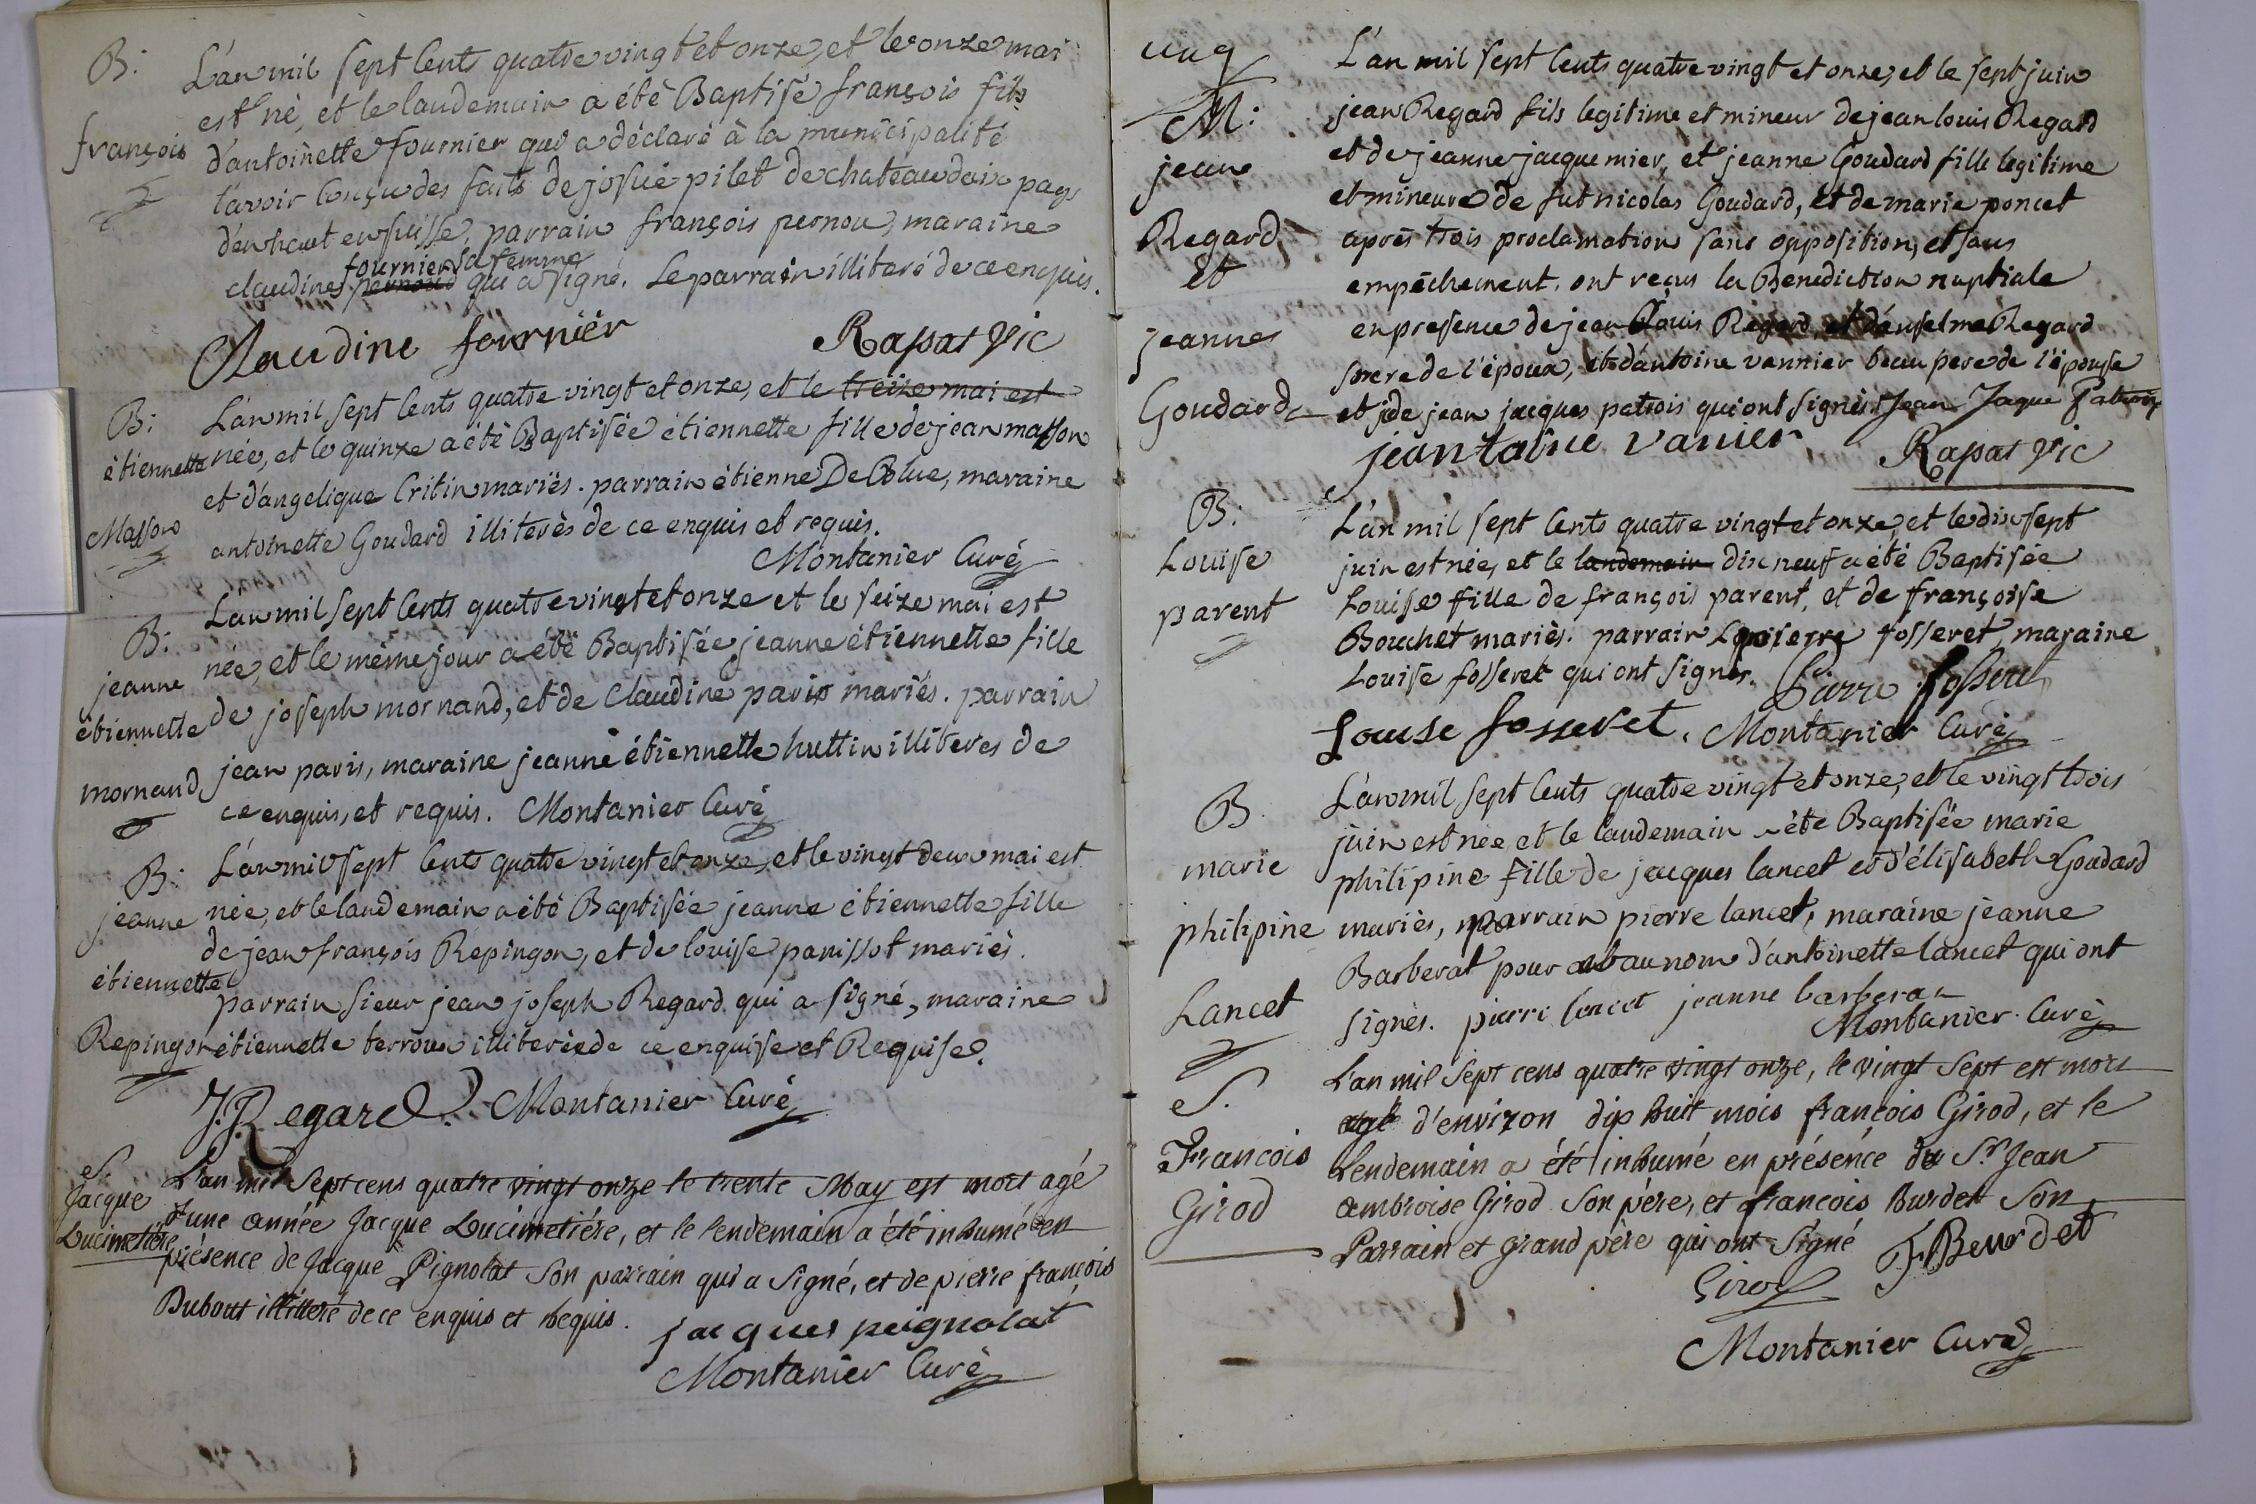 B:
françois
L'an mil sept Cents quatre vingt et onze, et le onze mai
est né, et le landemain a été Baptisé françois fils
d'antoinette fournier qui a déclaré à la municipalité
l'avoir Conçu des faits de josué pilet de chateau doix pays
d'en haut en suisse, parrain françois pernou, maraine
fournier sa femme
claudine pernoud qui a signé. Le parrain illiteré de ce enquis.
Claudine fournier Rapat Vic
B:
étiennette
Masson
L'an mil sept Cents quatre vingt et onze, et le treize mai est
née, et le quinze a été Baptisée étiennette fille de jean masson
et d'angelique Critin mariés. parrain étienne , maraine
antoinette Goudard illiterés de ce enquis et requis.
Montanier Curé
B:
jeanne
étiennette
mornand
L'an mil sept Cents quatre vingt et onze et le seize mai est
née, et le même jour a été Baptisée jeanne étiennette fille
de joseph mornand, et de Claudine paris mariés. parrain
jean paris, maraine jeanne étiennette huttin illiteres de
ce enquis, et requis. Montanier Curé
B:
jeanne
étiennette
Repingon
L'an mil sept Cents quatre vingt et onze, et le vingt deux mai est
née, et le landemain a été Baptisée jeanne étiennette fille
de jean françois Repingon, et de louise panissot mariés.
parrain sieur jean joseph Regard qui a signé, maraine
étiennette terroux illiterée de ce enquise et Requise.
J. J. Regard. Montanier Curé
S.
Jacque
Ducimetière
L'an mil Sept cens quatre vingt onze le trente May est mort agé
d'une année Jacque Ducimetiére, et le lendemain a été inhumé en
présence de Jacque Pignolat Son parrain qui a Signé, et de pierre françois
Dubout illitteré de ce enquis et requis.
jacques peignolat
Montanier Curé
cinq
M:
jean
Regard
et
jeanne
Goudard
L'an mil sept Cents quatre vingt et onze, et le sept juin
jean Regard fils legitime et mineur de jean louis Regard
et de jeanne jacquemier, et jeanne Goudard fille legitime
et mineure de fut nicolas Goudard, et de marie poncet
après trois proclamation sans opposition, et sans
empêchement, ont reçus la Benediction nuptiale
en presence de jean Louis Regard et d'anselme Regard
frere de l'époux, et d'antoine vannier beau pere de l'épouse
et de jean jacques patrois qui ont signés. Jean Jaque Patrois
jeantoine vanier Rapat Vic
B:
Louise
parent
L'an mil sept Cents quatre vingt et onze, et le dix sept
juin est née, et le landemain dix neuf a été Baptisée
Louise fille de françois parent, et de françoise
Bouchet mariés. parrain pierre fosseret, maraine
Louise fosseret qui ont signés. Pierre fosseret
Louise fosseret. Montanier Curé
B
marie
philipine
Lancet
L'an mil sept Cents quatre vingt et onze, et le vingt trois
juin est née et le landemain a été Baptisée marie
philipine fille de jacques lancet et d'élisabeth Goudard
mariés, parrain pierre lancet, maraine jeanne
Barberat pour et au nom d'antoinette lancet qui ont
signés. pierre lancet jeanne barberat
Montanier Curé
S.
Francois
Girod
L'an mil Sept cens quatre vingt onze, le vingt Sept est mort
agé d'environ dix huit mois françois Girod, et le
Lendemain a été inhumé en présence du Sr Jean
Ambroise Girod Son père, et françois Burdet Son
Parrain et grand père qui ont Signé
Girod F Beurdet
Montanier Curé